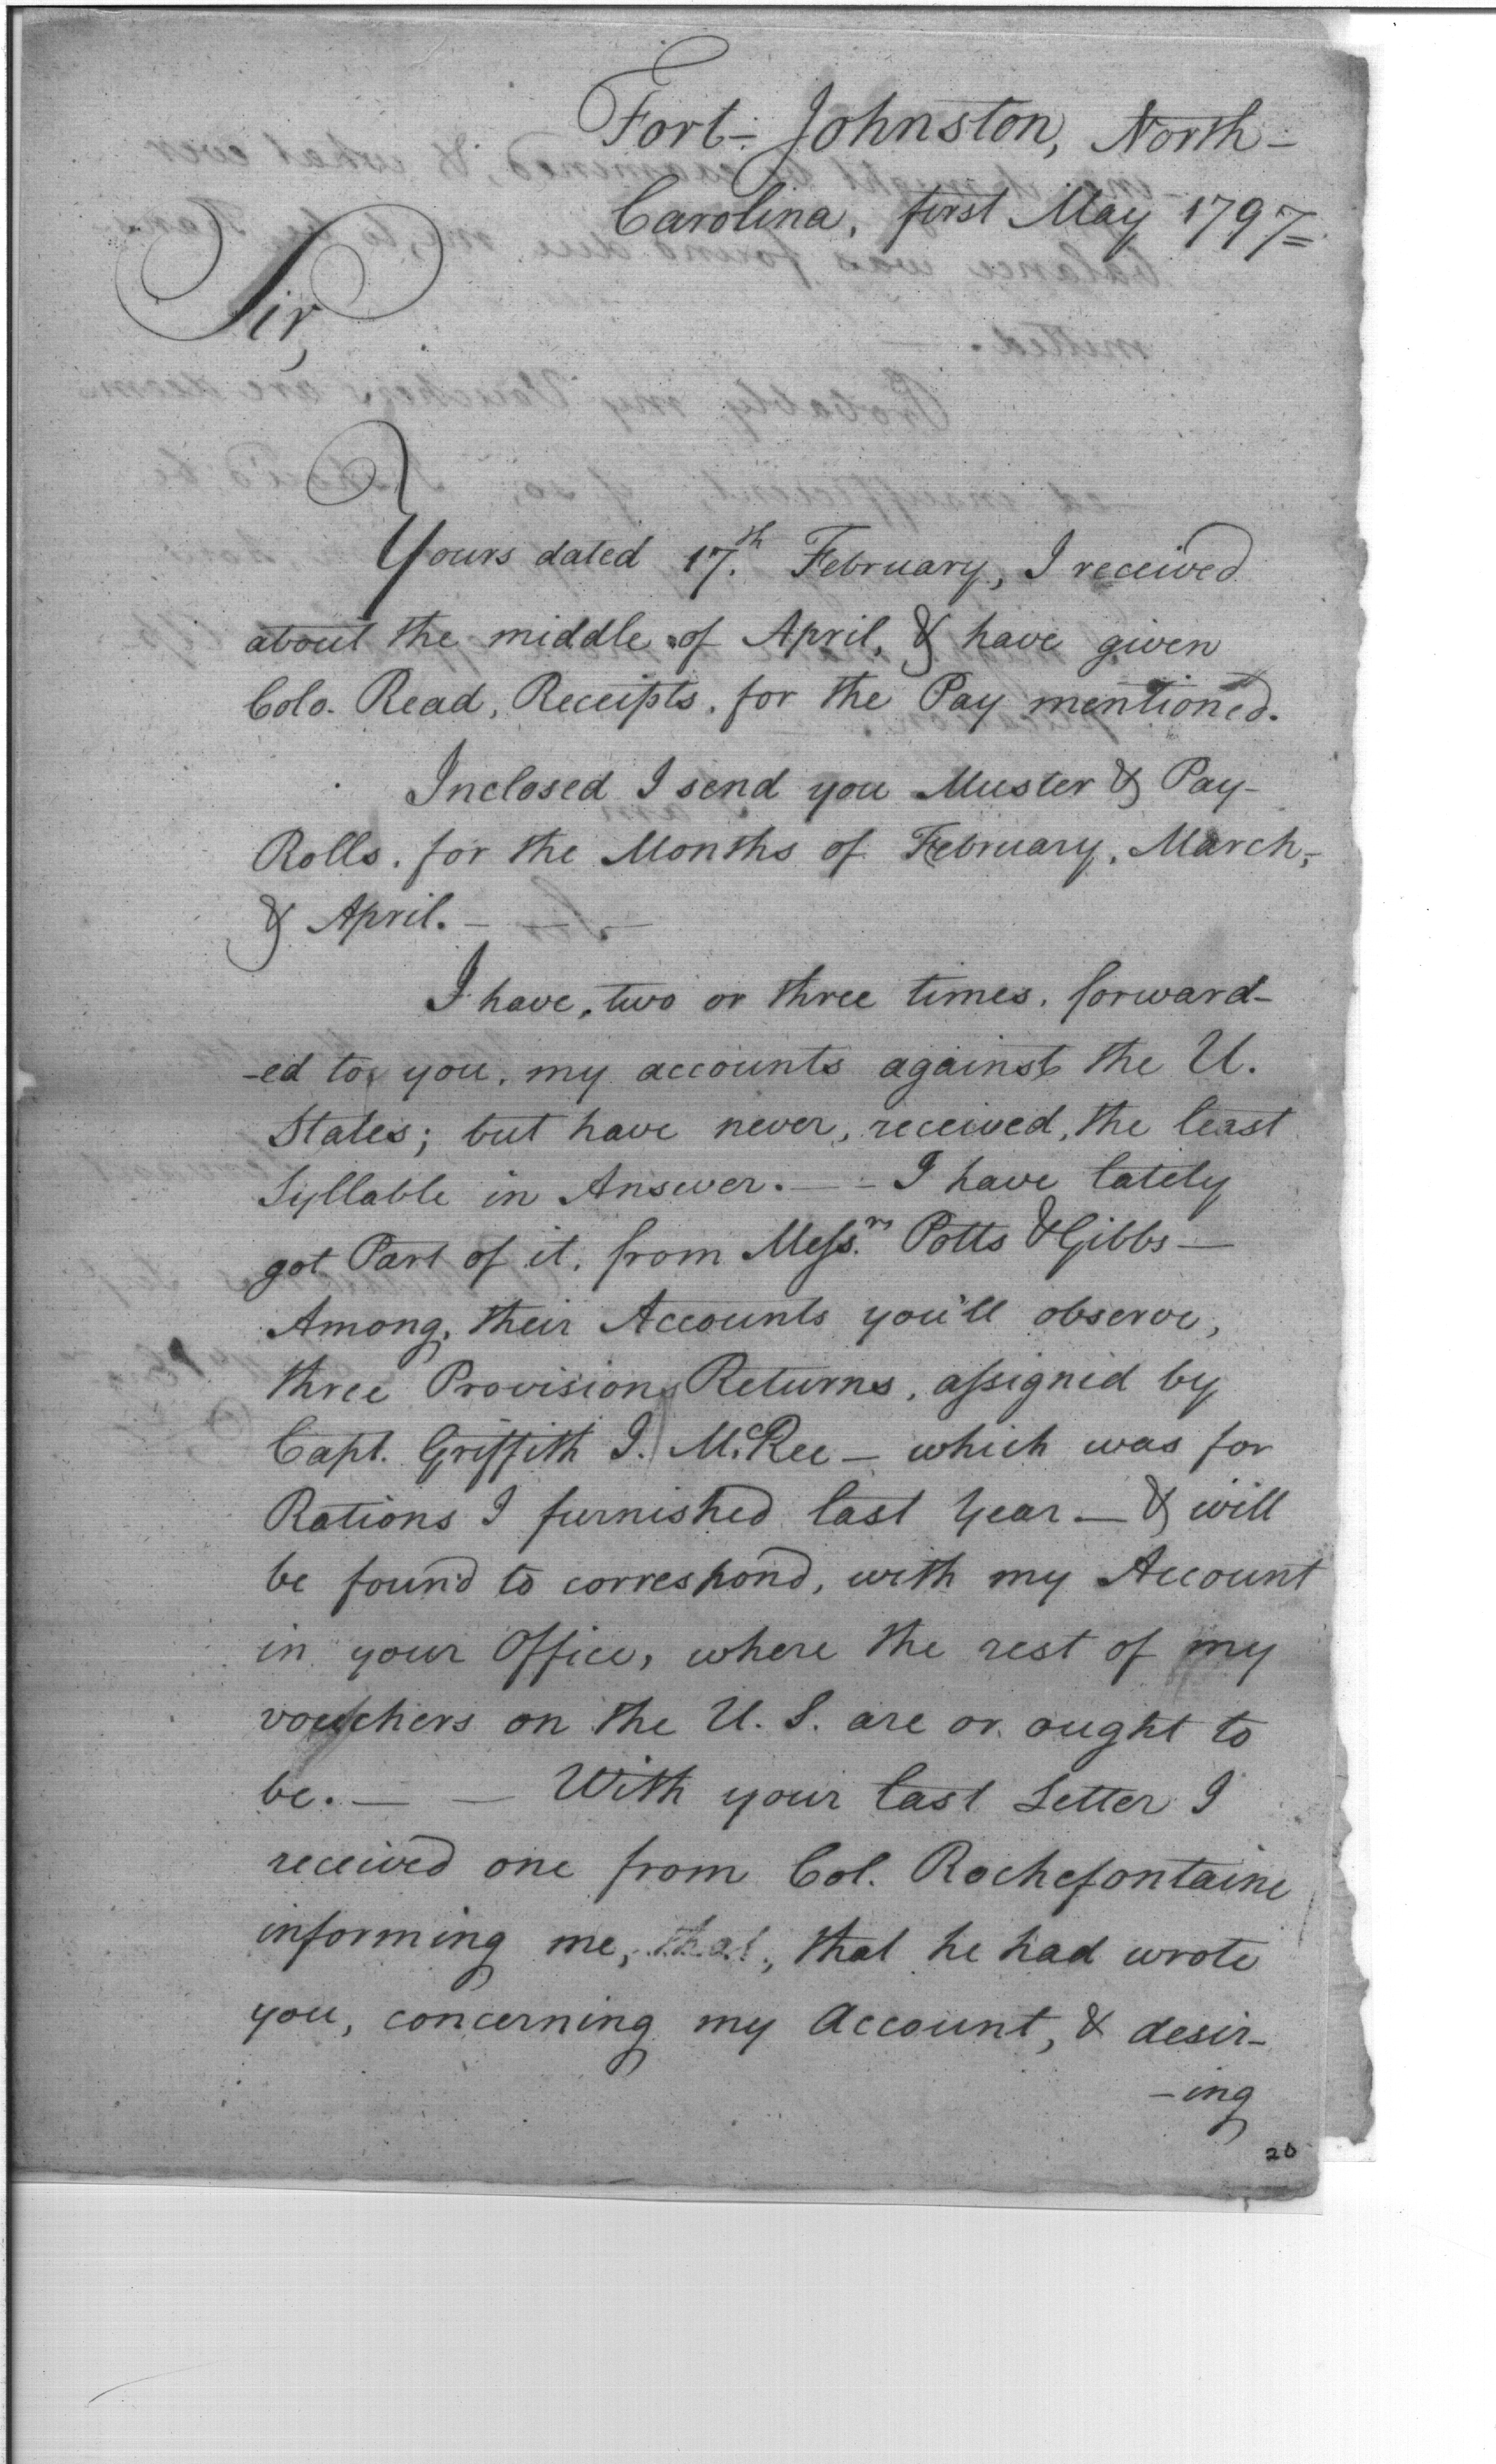 Fort- Johnston, North-
Carolina, first May 1797=
Sir,
Yours dated 17.th February, I received
about the middle of April, & have given
Colo. Read, Receipts, for the Pay mentioned.
Inclosed I send you Muster & Pay-
Rolls, for the Months of February, March,
& April. - - -
I have, two or three times, forward-
-ed to you, my accounts against the U.
States; but have never, received, the least
Syllable in Answer. - - I have lately
got Part of it, from Mess.rs Potts & Gibbs -
Among, their Accounts you'll observe,
three Provision Returns, assigned by
Capt. Griffith J. McRee - which was for
Rations I furnished last Year - & will
be found to correspond, with my Account
in your Office, where the rest of my
vouchers on the U. S. are or ought to
be. - - With your last Letter I
received one from Col. Rochefontaine
informing me, that, that he had wrote
you, concerning my Account, & desir-
-ing
20